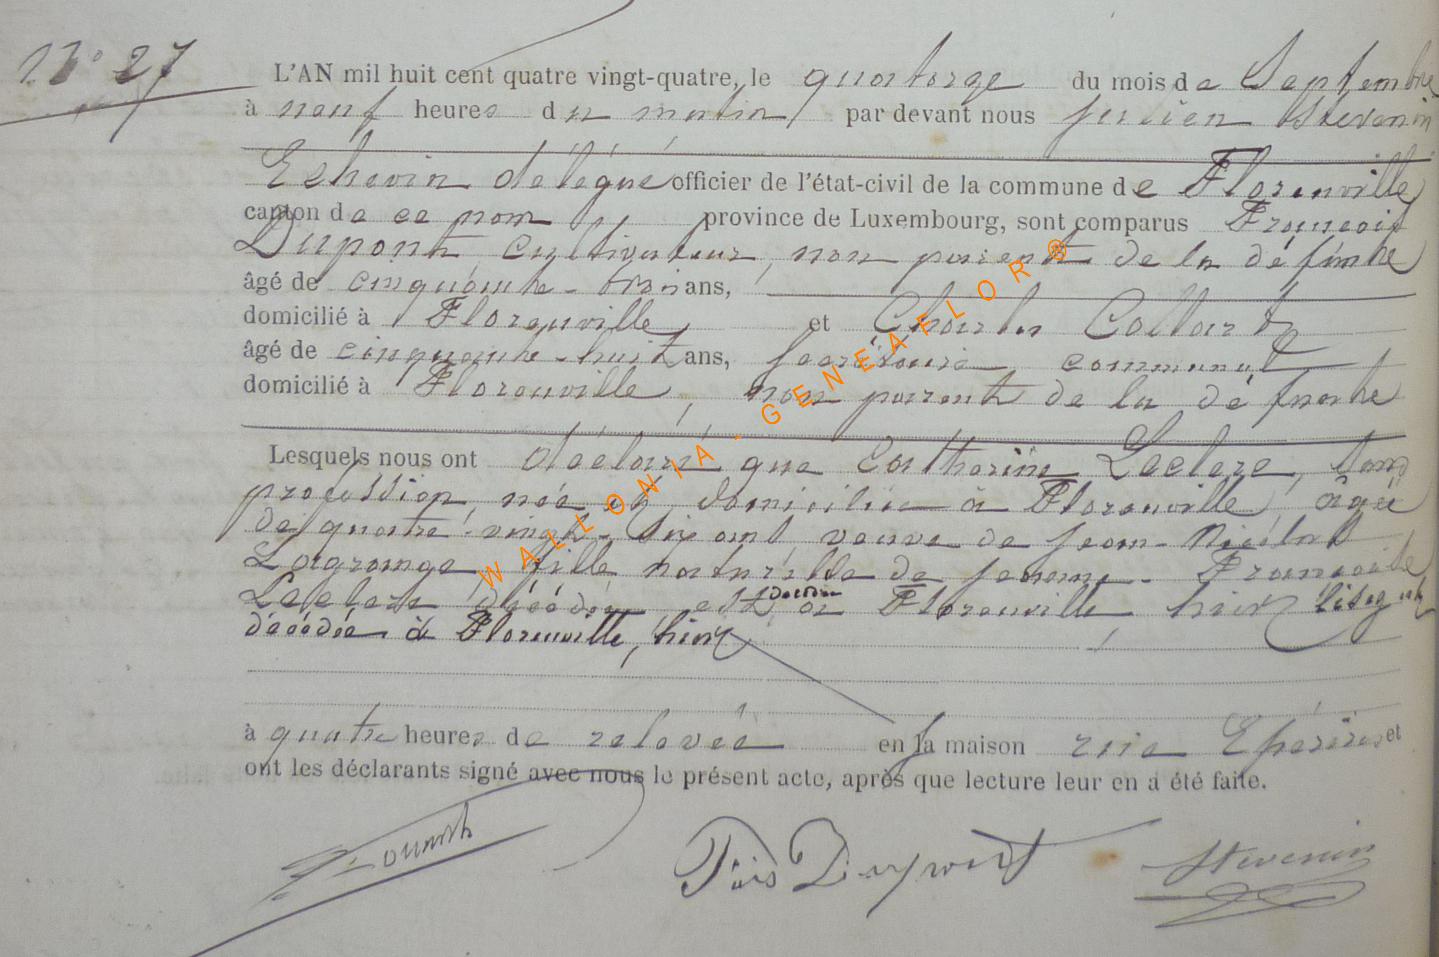 N° 27
L'AN mil huit cent quatre vingt-quatre, le quatorze du mois de Septembre
à neuf heures du matin par devant nous Julien Stevenin
Echevin délégué officier de l'état-civil de la commune de Florenville
canton de ce nom, province de Luxembourg, sont comparus François
Dupont, cultivateur, non parent de la défunte
âgé de cinquante-trois ans,
domicilié à Florenville, et Charles Collard
âgé de cinquante-huit ans, secrétaire communal
domicilié à Florenville, non parent de la défunte
Lesquels nous ont déclaré que Catherine Leclere, sans
profession, née et domiciliée à Florenville, âgée
de quatre-vingt-six ans, veuve de Jean-Nicolas
Lagrange, fille naturelle de Jeanne-Françoise
Leclere décédée est à Florenville hier est
décédée à Florenville, hier
à quatre heures de relevée en sa maison rue et
ont les déclarants signé avec nous le présent acte, après que lecture leur en a été faite.
Frois Dupont Stevenin
WALLONIA - GENEAFLOR ®